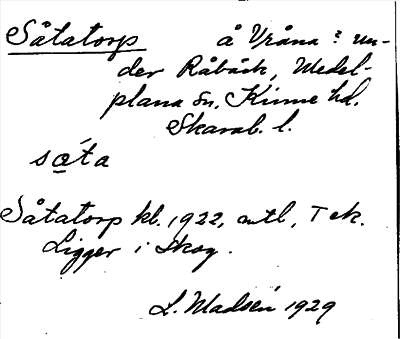 Såtatorp å Vråna? un-
der Råbäck, Medel-
plana sn, Kinne hd.
Skarab. l.
sǫ̀ta
Såtatorp kl. 1922, antl, Tek.
Ligger i skog.
L. Madsén 1929